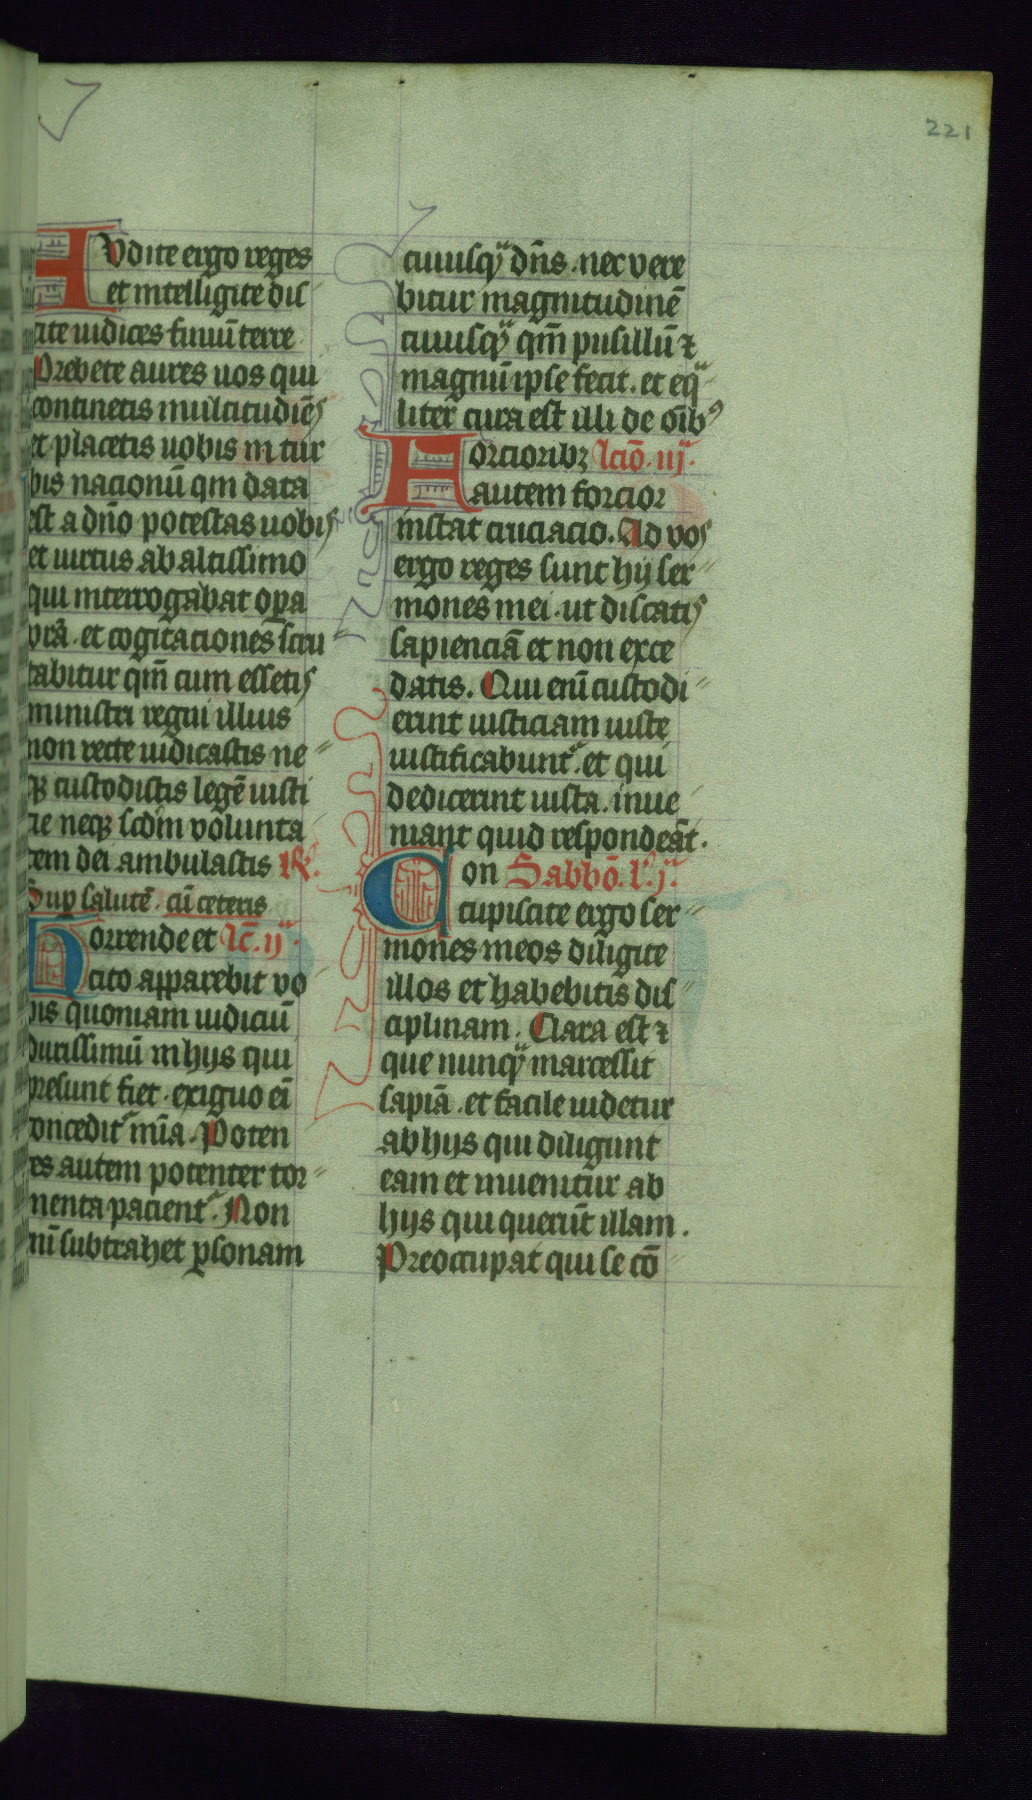 221
AVdite ergo reges
et intelligite dis
cite iudices finiu᷑ terre
Prebete aures uos qui
continetis multitudinē
et placetis uobis in tur
bis nacionū qm̄ data
est a dn̄o potestas uobis
et uirtus ab altissimo
qui interrogabat oꝑa
vrā . et cogitaciones scru
tabitur qm̄ cum essetis
ministri regni illius
non recte iudicastis ne
qꝫ custodistis legē iusti
cie neqꝫ scd̄m volunta
tem dei ambulastis R̸.
Suꝑ salutē . cū ceteris
Horrende et lc̄. ijᵃ.
cito apparebit vo
bis quoniam iudiciū
durissimū in hijs qui
presunt fiet . exiguo ei᷑
concedit᷑ mīa . Poten
tes autem potenter tor
menta pacient᷑ . Non
eni᷑ subtrahet ꝑsonam
cuiusqᵃ dn̄s . nec vere
bitur magnitudinē
cuiusqᵃ qm̄ pusillū ⁊
magnū ipse fecit . et eqᵃ
liter cura est illi de oībꝰ
Forcioribꝫ lcīo. iijᵃ.
autem forcior
instat cruciacio . Ad vos
ergo reges sunt hij ser
mones mei . ut discatis
sapienciā et non exce
datis . Qui eni᷑ custodi
erint iusticiam iuste
iustificabunt᷑ . et qui
dedicerint iusta . inue
niant quid respondeāt .
Con Sabbō. l̕. jᵃ.
cupiscite ergo ser
mones meos diligite
illos et habebitis dis
ciplinam . Clara est ⁊
que nunqᵃ marcessit
sapiā . et facile uidetur
ab hijs qui diligunt
eam et inuenitur ab
hijs qui querūt illam .
Preoccupat qui se cō